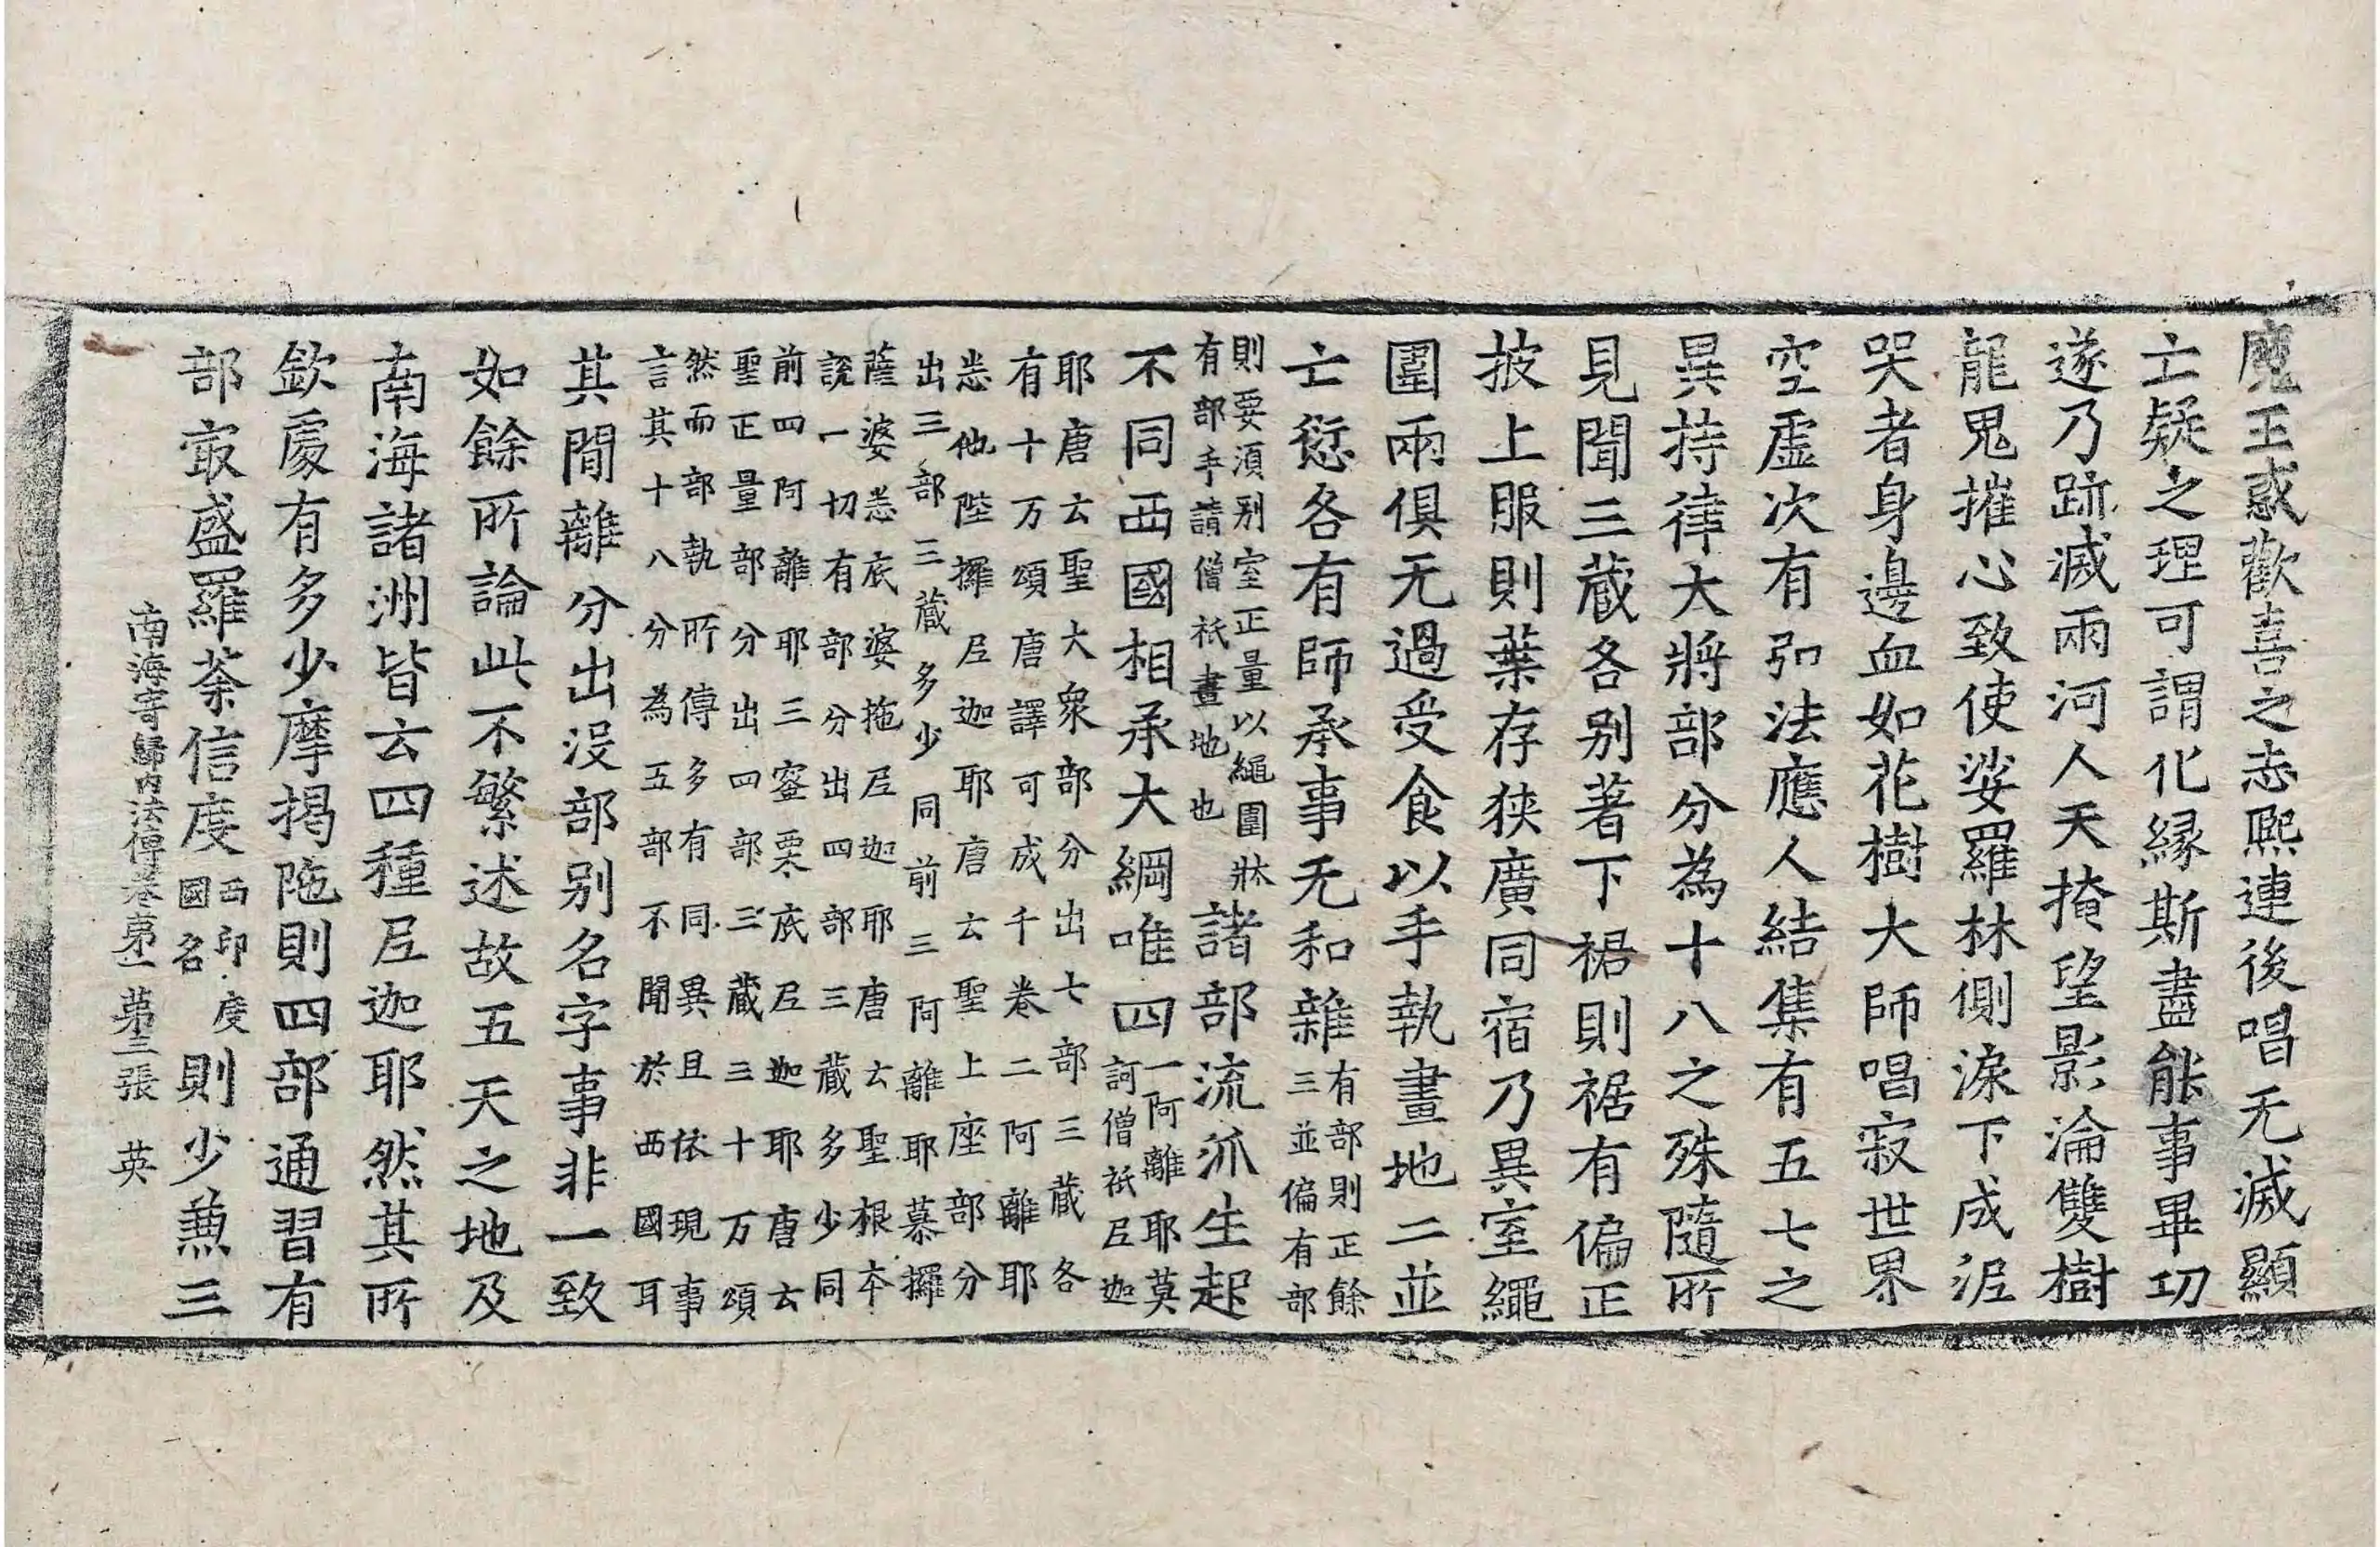 魔王惑歡喜之志熈連後唱无滅顯
亡疑之理可謂化緣斯盡能事畢功
遂乃跡滅兩河人天掩望影淪雙樹
龍鬼摧心致使娑羅林側淚下成泥
哭者身邊血如花樹大師唱寂世界
空虛次有弘法應人結集有五七之
異持律大將部分為十八之殊隨所
見聞三藏各別著下裙則裾有偏正
披上服則葉存狹廣同宿乃異室繩
圍兩俱无過受食以手執畫地二並
亡愆各有師承事无和雜有部則正餘
三並偏有部
則要須別室正量以繩圍牀
有部手請僧祇畫地也諸部流派生起
不同西國相承大綱唯四一阿離耶莫
訶僧祇尼迦
耶唐云聖大衆部分出七部三藏各
有十万頌唐譯可成千卷二阿離耶
悉他陛攞尼迦耶唐云聖上座部分
出三部三藏多少同前三阿離耶慕攞
薩婆悉底婆拖尼迦耶唐云聖根本
說一切有部分出四部三藏多少同
前四阿離耶三蜜栗底尼迦耶唐云
聖正量部分出四部三藏三十万頌
然而部執所傳多有同異且依現事
言其十八分為五部不聞於西國耳
其閒離分出沒部別名字事非一致
如餘所論此不繁述故五天之地及
南海諸洲皆云四種尼迦耶然其所
欽處有多少摩揭陁則四部通習有
部㝡盛羅荼信度西印度
國名則少兼三
南海寄歸內法傳卷第一 第三張 英